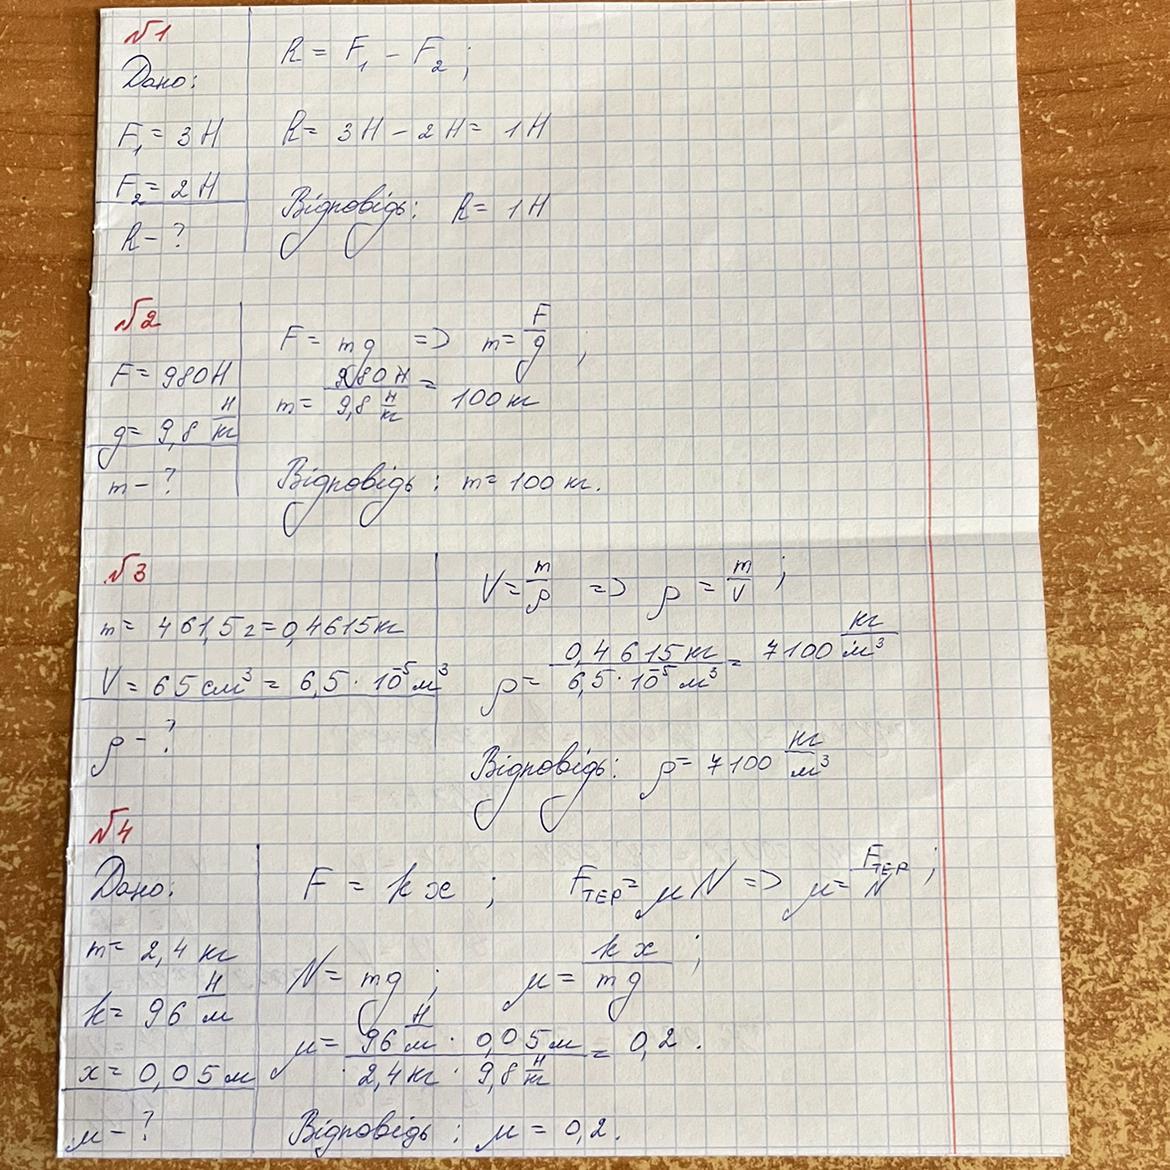 №1
Дано:
F₁ = 3 Н
F₂ = 2 Н
R - ?
R = F₁ - F₂ ;
R = 3 Н - 2 Н = 1 Н
Відповідь: R = 1 Н
№2
F = 980 Н
g = 9,8 Н/кг
m - ?
F = mg => m = F/g ;
m = 980 Н / 9,8 Н/кг = 100 кг
Відповідь : m = 100 кг.
№3
m = 461,5 г = 0,4615 кг
V = 65 см³ = 6,5 · 10⁻⁵ м³
ρ - ?
V = m/ρ => ρ = m/V ;
ρ = 0,4615 кг / 6,5 · 10⁻⁵ м³ = 7100 кг/м³
Відповідь: ρ = 7100 кг/м³
№4
Дано:
m = 2,4 кг
k = 96 Н/м
x = 0,05 м
μ - ?
F = kx ; Fтер = μN => μ = Fтер/N ;
N = mg ; μ = kx/mg ;
μ = 96 Н/м · 0,05 м / 2,4 кг · 9,8 Н/кг = 0,2 .
Відповідь : μ = 0,2.